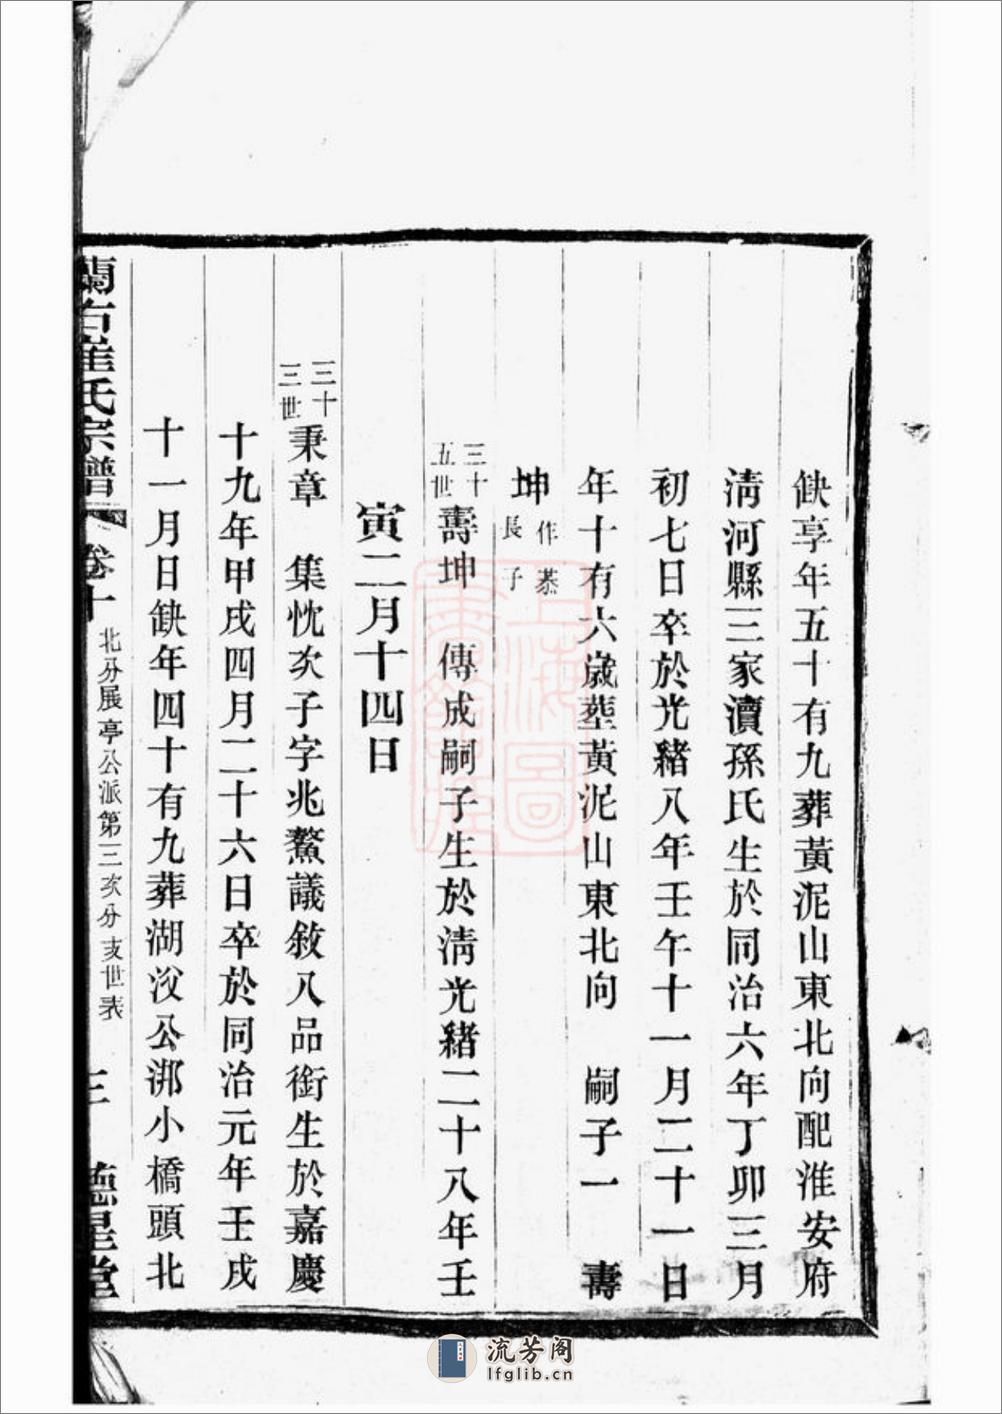 缺享年五十有九葬黃泥山東北向配淮安府
淸河縣三家瀆孫氏生於同治六年丁卯三月
初七日卒於光緖八年壬午十一月二十一日
年十有六歲葬黃泥山東北向　嗣子一　壽
坤作恭長子
三十五世壽坤　傳成嗣子生於淸光緖二十八年壬
寅二月十四日
三十三世秉章　集忱次子字兆鰲議敘八品銜生於嘉慶
十九年甲戌四月二十六日卒於同治元年壬戌
十一月日缺年四十有九葬湖汊公泖小橋頭北
蘭右崔氏宗譜　卷十　北分展亭公派第三次分支世表　三　德星堂
上海圖書館藏
流芳阁
lfglib.cn